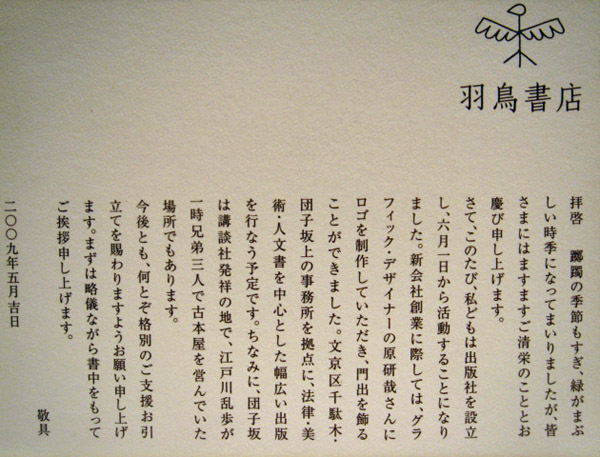 羽鳥書店
拝啓　躑躅の季節もすぎ、緑がまぶ
しい時季になってまいりましたが、皆
さまにはますますご清栄のこととお
慶び申し上げます。
さて、このたび私どもは出版社を設立
し、六月一日から活動することになり
ました。新会社創業に際しては、グラ
フィック・デザイナーの原研哉さんに
ロゴを制作していただき、門出を飾る
ことができました。文京区千駄木・
団子坂上の事務所を拠点に、法律・美
術・人文書を中心とした幅広い出版
を行なう予定です。ちなみに、団子坂
は講談社発祥の地で、江戸川乱歩が
一時兄弟三人で古本屋を営んでいた
場所でもあります。
今後とも、何とぞ格別のご支援お引
立てを賜わりますようお願い申し上げ
ます。まずは略儀ながら書中をもって
ご挨拶申し上げます。
敬具
二〇〇九年五月吉日